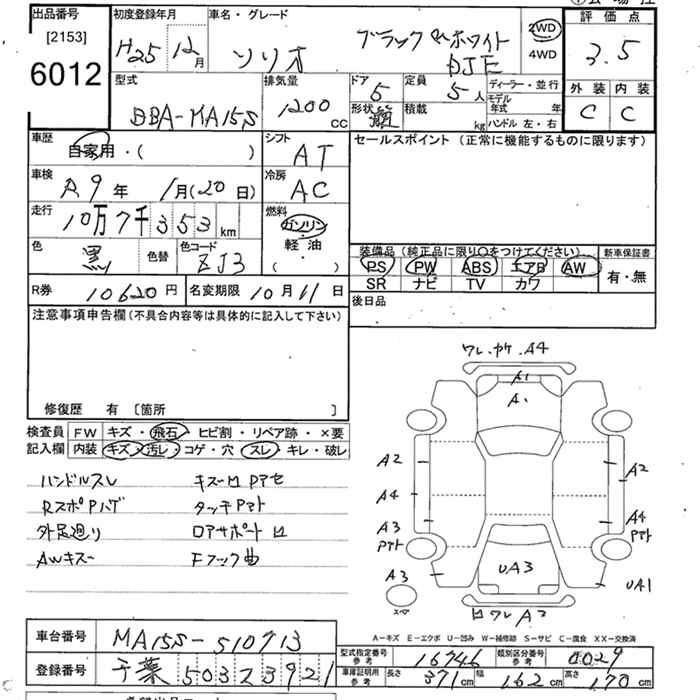 出品番号
[2153]
6012
初度登録年月
H25 12月
車名・グレード
ソリオ
ブラック&ホワイト
DJE
2WD
4WD
評価点
3.5
外装 内装
C C
型式
DBA-MA15S
排気量
1200 cc
ドア
5
形状
定員
5人
積載
kg
ディーラー・並行
モデル年式 年
ハンドル 左・右
車歴
自家用・( )
シフト
AT
セールスポイント (正常に機能するものに限ります)
車検
R9年 1月(20日)
冷房
AC
走行
10万7千353km
燃料
ガソリン
軽・油
( )
色
黒
色替
色コード
ZJ3
装備品 (純正品に限り○をつけてください)
PS PW ABS エアB AW
SR ナビ TV カワ
新車保証書
有・無
R券
10620円
名変期限
10月11日
後日品
注意事項申告欄(不具合内容等は具体的に記入して下さい)
修復歴 有 〔箇所 〕
検査員記入欄
FW キズ・飛石・ヒビ割・リペア跡・×要
内装 キズ・汚レ・コゲ・穴・スレ・キレ・破レ
ハンドルスレ
RスポPハゲ
外足廻り
AWキズー
タッチPアト
ロアサポートロ
Fフック曲
ワレ.カケ.A4
A1
A.
A2
A4
A3
Pアト
A3
スペア
A2
A4
Pアト
UA3
UA1
ロワレA2
A-キズ E-エクボ U-凹み W-補修跡 S-サビ C-腐食 XX-交換済
車台番号
MA15S-510713
登録番号
千葉 503 ス 3921
型式指定番号 参考
16746
類別区分番号 参考
0029
車庫証明用 参考
長さ 371cm 幅 162cm 高さ 170cm